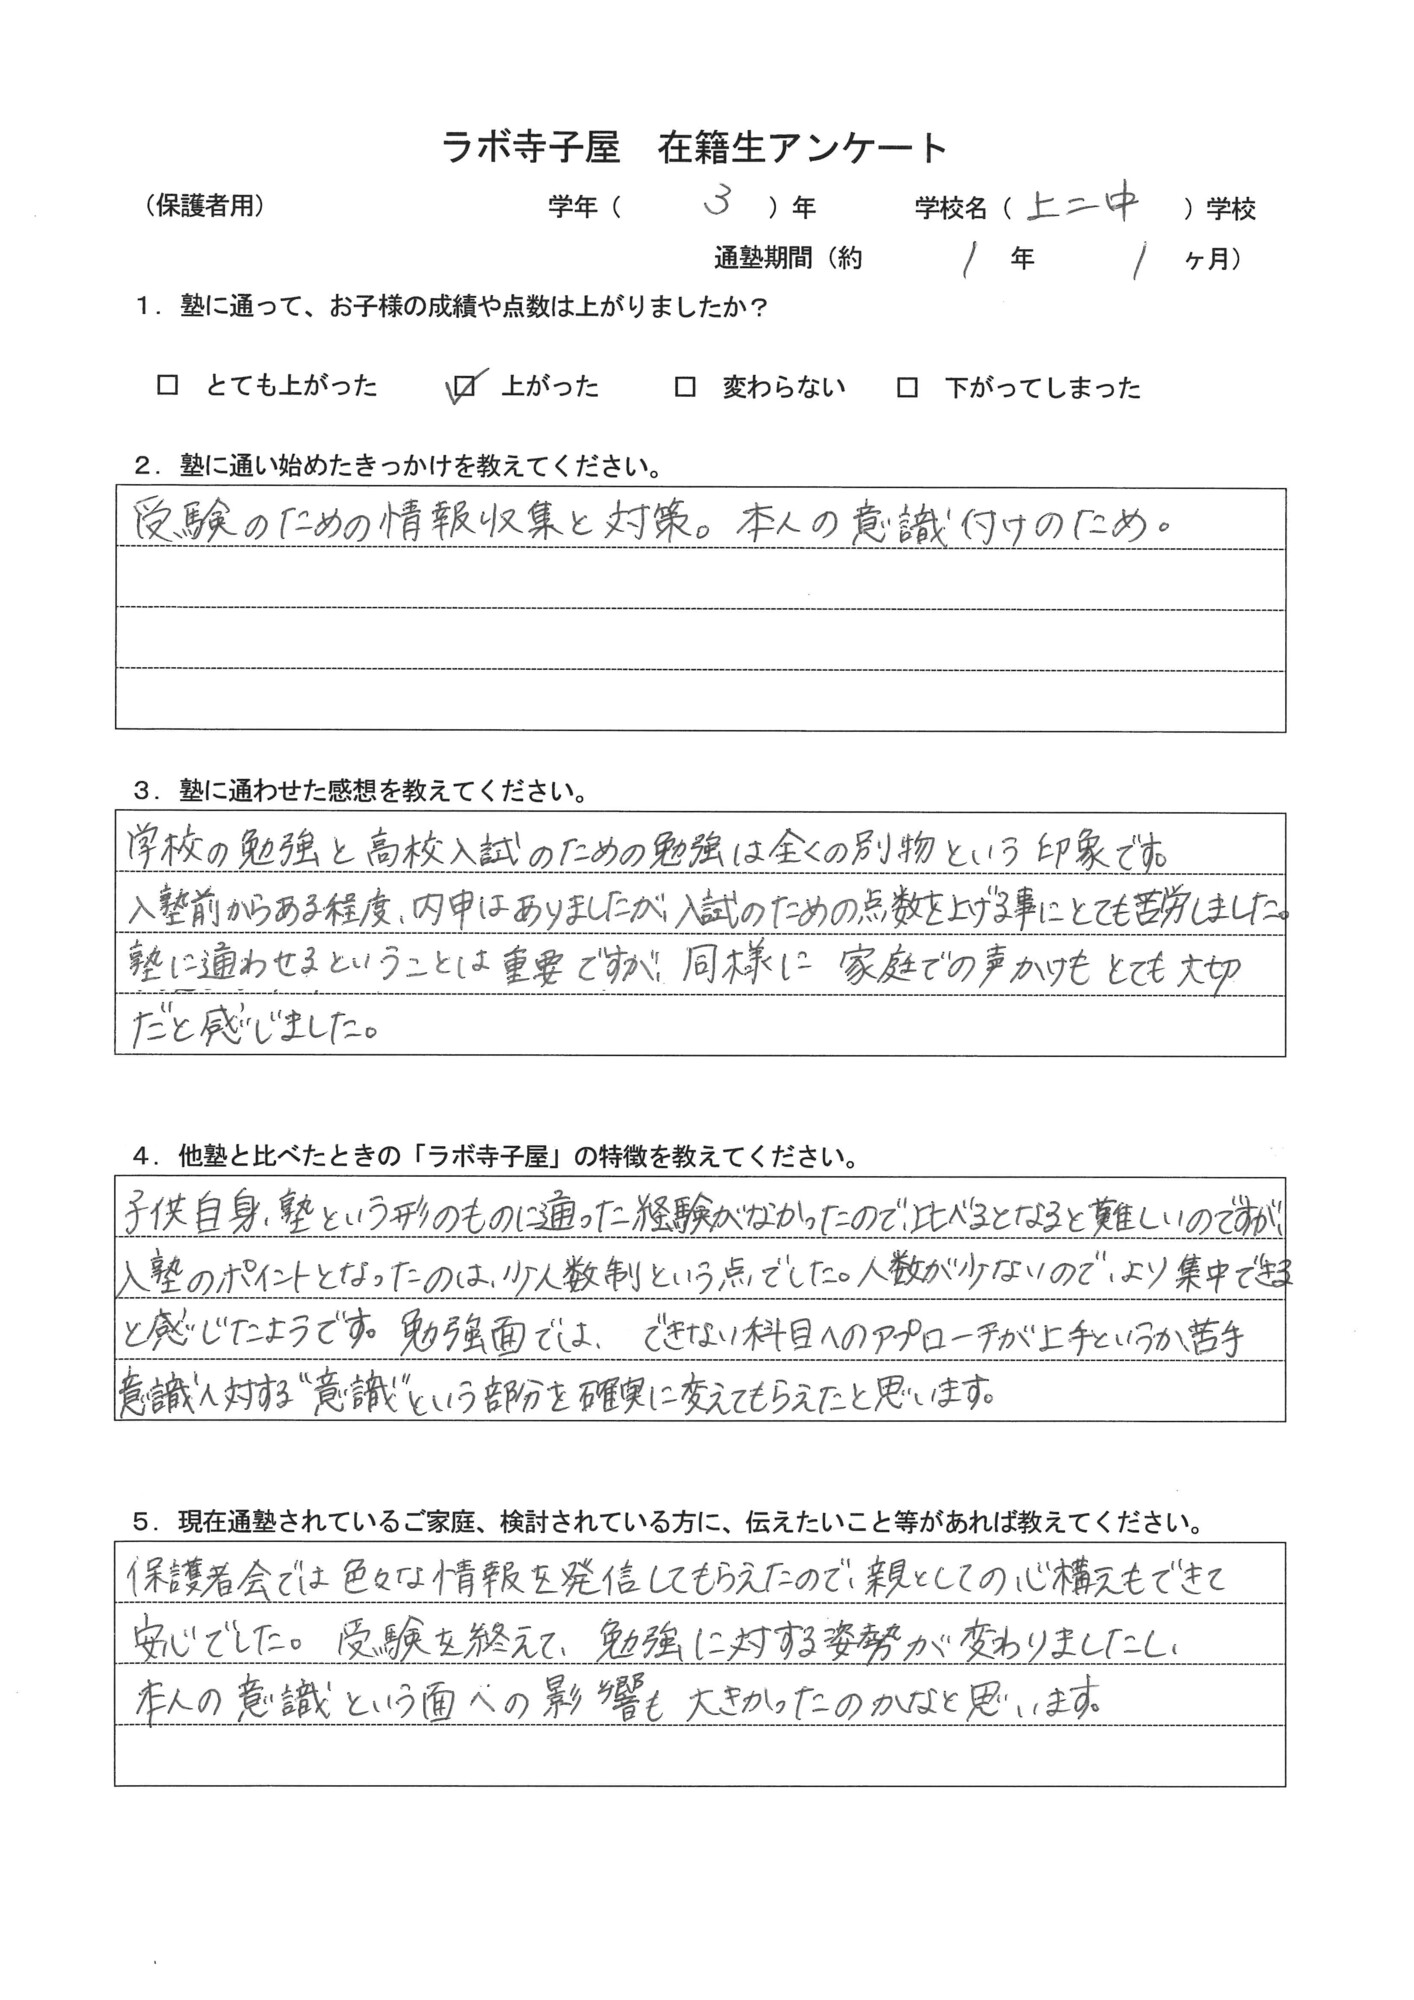 ラボ寺子屋　在籍生アンケート
（保護者用）　学年（　3　）年　学校名（　上二中　）学校
通塾期間（約　1　年　1　ヶ月）
１．塾に通って、お子様の成績や点数は上がりましたか？
□　とても上がった　☑　上がった　□　変わらない　□　下がってしまった
２．塾に通い始めたきっかけを教えてください。
受験のための情報収集と対策。本人の意識付けのため。
３．塾に通わせた感想を教えてください。
学校の勉強と高校入試のための勉強は全くの別物という印象です。
入塾前からある程度、内申はありましたが、入試のための点数を上げる事にとても苦労しました。
塾に通わせるということは重要ですが、同様に家庭での声かけもとても大切
だと感じました。
４．他塾と比べたときの「ラボ寺子屋」の特徴を教えてください。
子供自身、塾という形のものに通った経験がなかったので、比べるとなると難しいのですが、
入塾のポイントとなったのは、少人数制という点でした。人数が少ないので、より集中できる
と感じたようです。勉強面では、できない科目へのアプローチが上手というか、苦手
意識へ対する“意識”という部分を確実に変えてもらえたと思います。
５．現在通塾されているご家庭、検討されている方に、伝えたいこと等があれば教えてください。
保護者会では色々な情報を発信してもらえたので、親としての心構えもできて
安心でした。受験を終えて、勉強に対する姿勢が変わりましたし、
本人の意識という面への影響も大きかったのかなと思います。